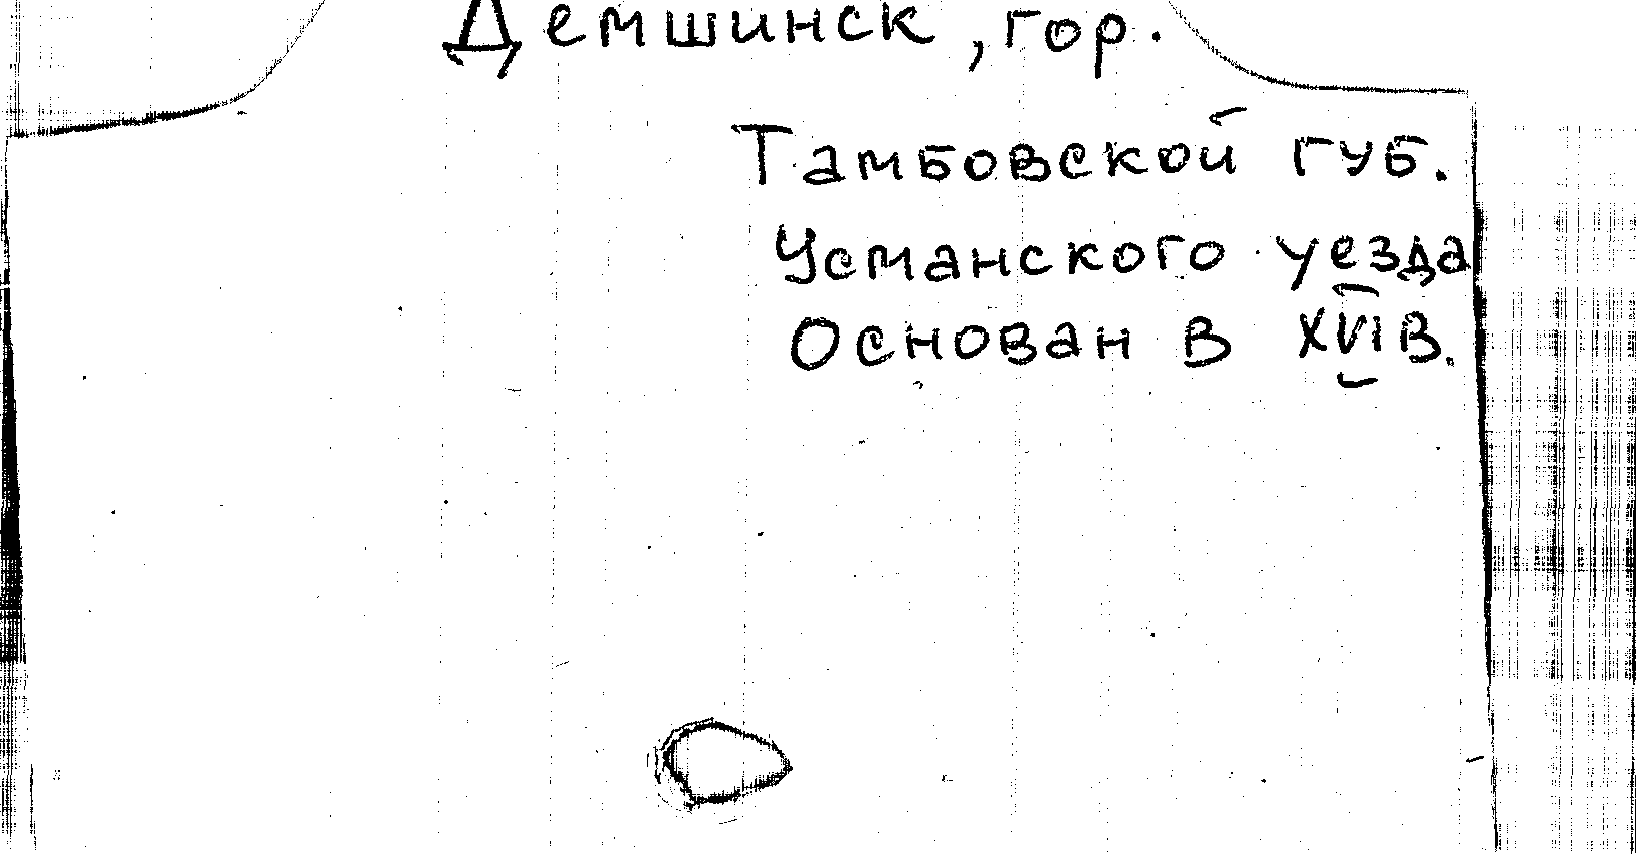 Демшинск, гор.
Тамбовской губ.
Усманского уезда
Основан в XVI в.